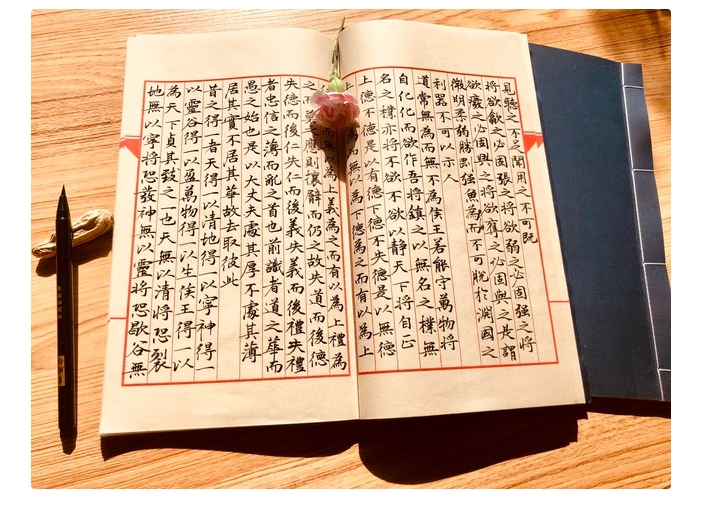 見聽之不足聞用之不可既
將欲歙之必固張之將欲弱之必固强之將
欲癈之必固興之將欲奪之必固與之是謂
微明柔弱勝剛强魚而不可脫於淵國之
利器不可以示人
道常無為而無不為侯王若能守萬物將
自化化而欲作吾將鎮之以無名之樸無
名之樸亦將不欲不欲以靜天下將自正
上德不德是以有德下德不失德是以無德
上為而無以為下德為之而有以為上
而無以為上義為之而有以為上禮為
之而應則讓辭而仍之故失道而後德
失德而後仁失仁而後義失義而後禮夫禮
者忠信之薄而亂之首也前識者道之華而
愚之始也是以大丈夫處其厚不處其薄
居其實不居其華故去取彼此
昔之得一者天得一以清地得一以寧神得一
以靈谷得一以盈萬物得一以生侯王得一以
為天下貞其致之一也天無以清將恐裂
地無以寧將恐發神無以靈將恐歇谷無